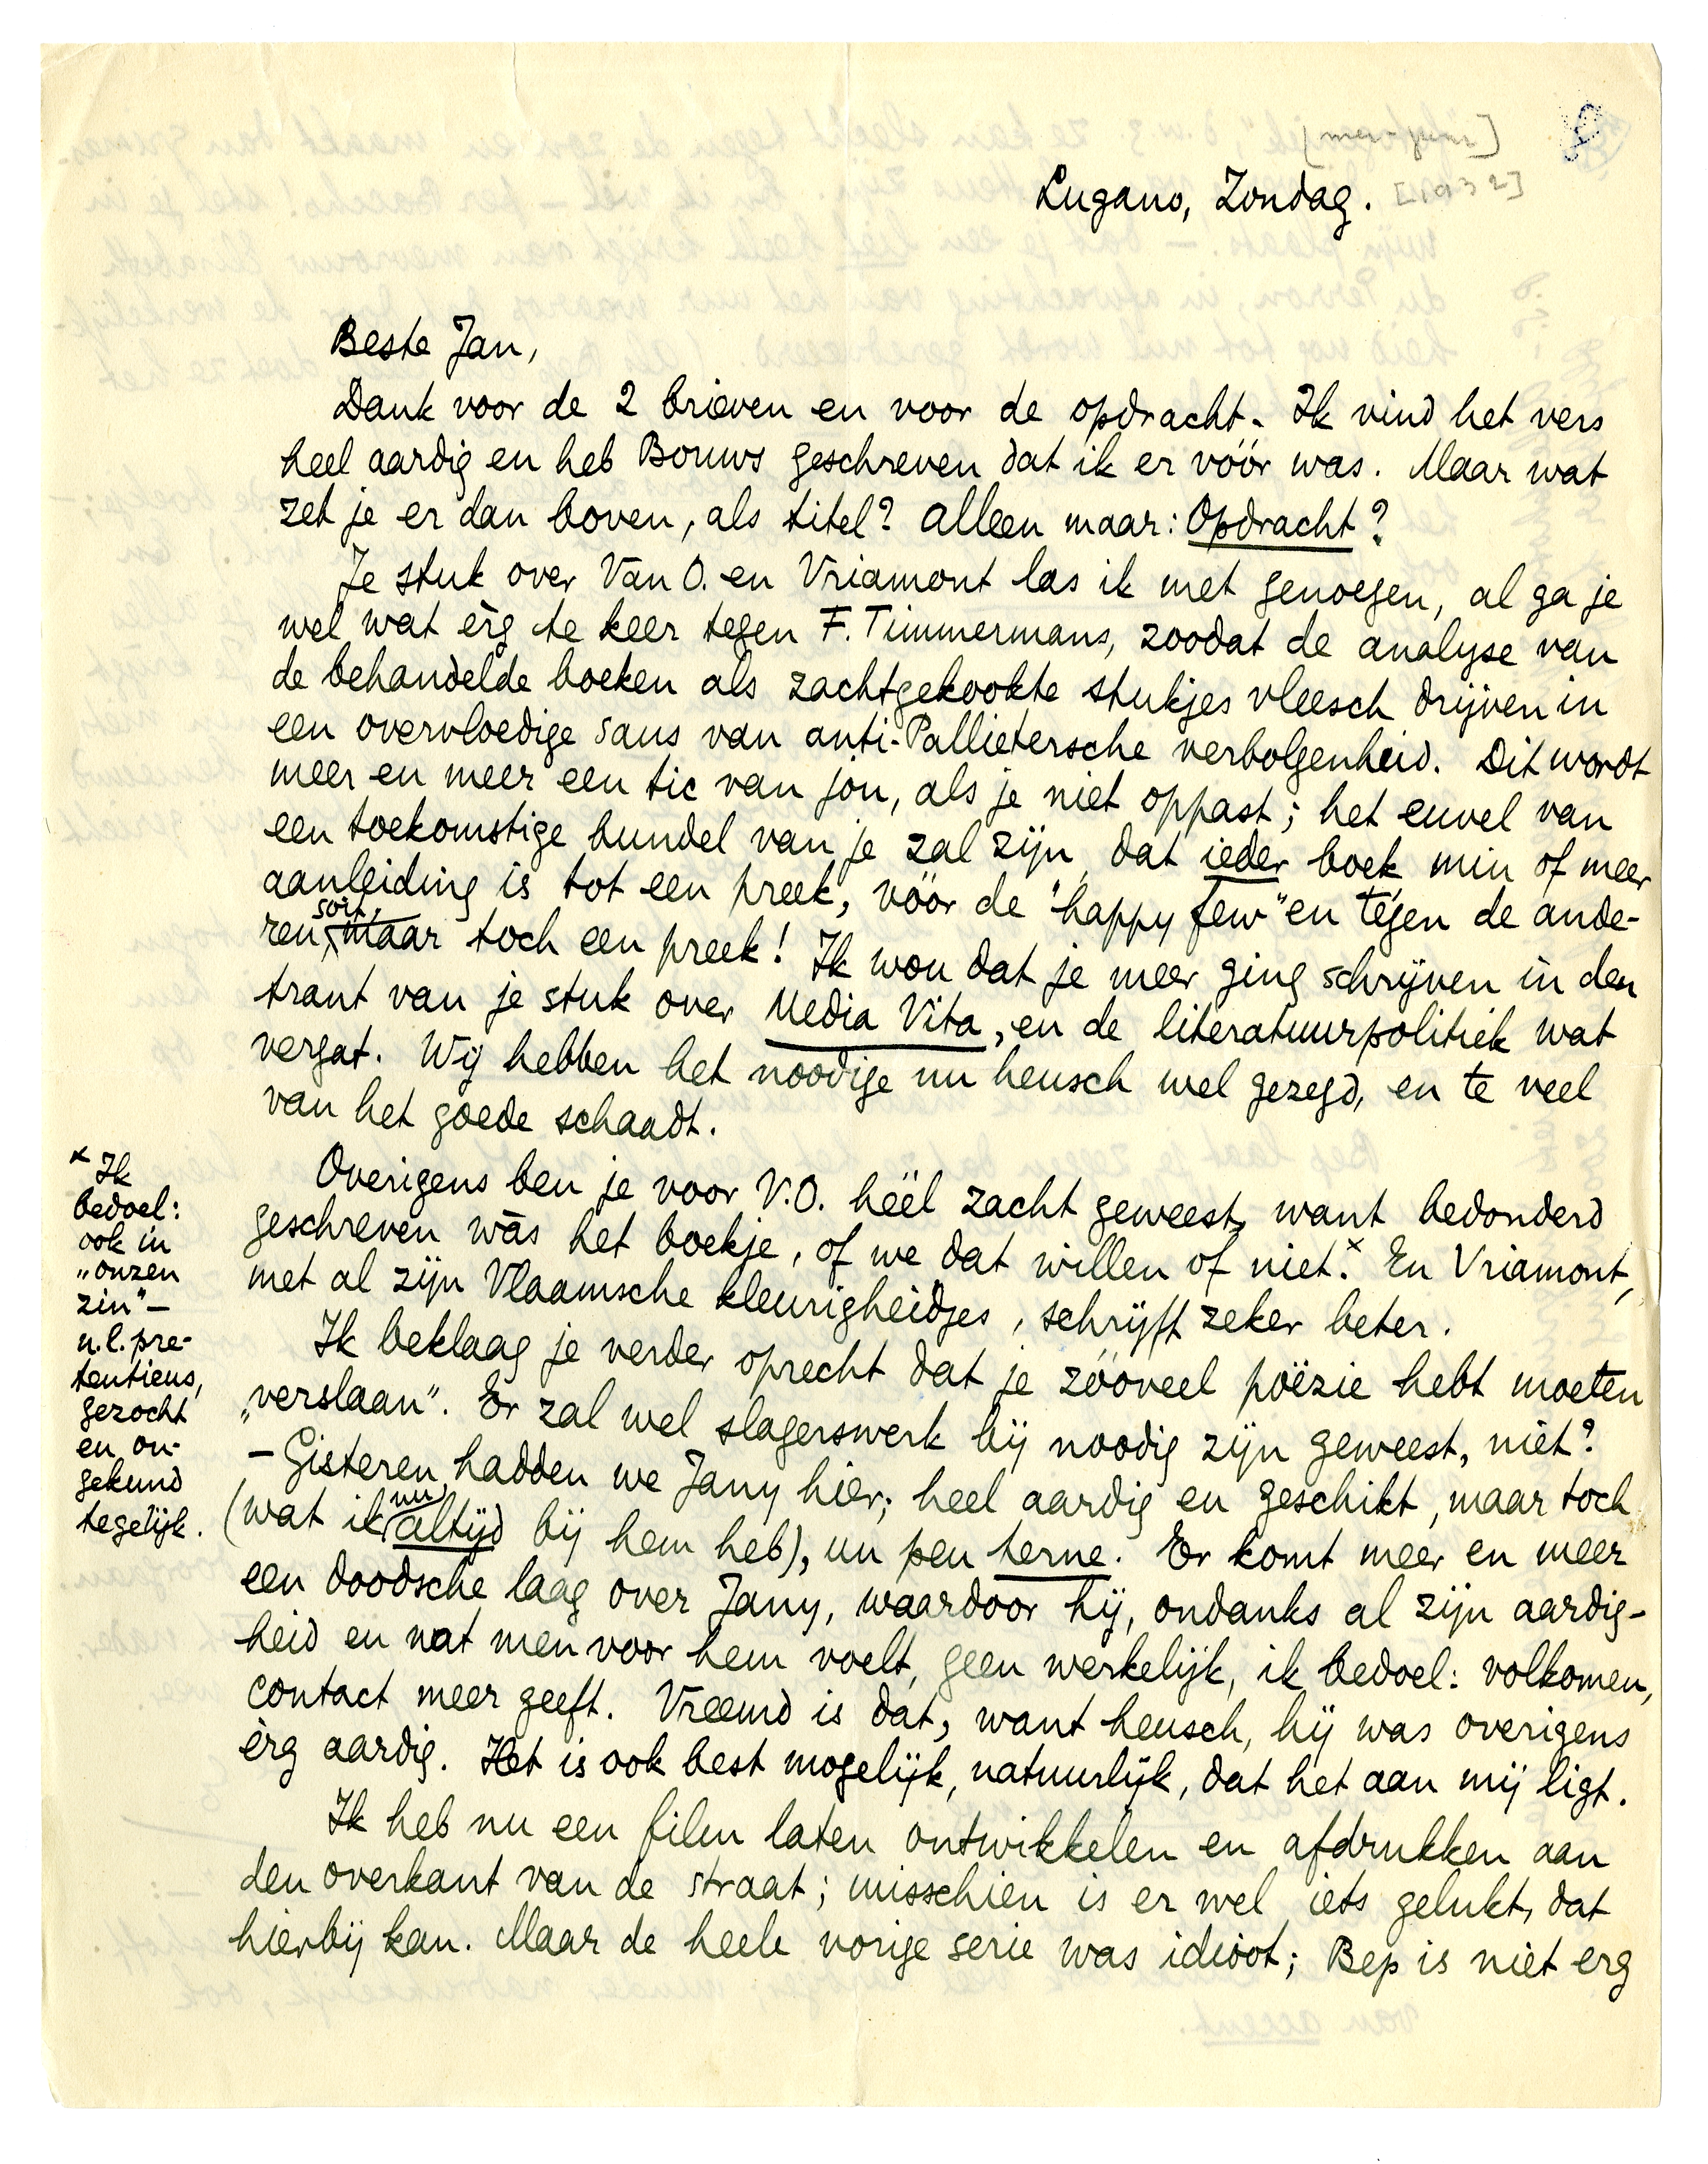 [mei-juni]
Lugano, Zondag. [1932]
Beste Jan,
Dank voor de 2 brieven en voor de opdracht. Ik vind het vers
heel aardig en heb Bouws geschreven dat ik er vóór was. Maar wat
zet je er dan boven, als titel? Alleen maar: Opdracht?
Je stuk over Van O. en Vriamont las ik met genoegen, al ga je
wel wat èrg te keer tegen F. Timmermans, zoodat de analyse van
de behandelde boeken als zachtgekookte stukjes vleesch drijven in
een overvloedige saus van anti-Pallietersche verbolgenheid. Dit wordt
meer en meer een tic van jou, als je niet oppast; het euvel van
een toekomstige bundel van je zal zijn dat ieder boek min of meer
aanleiding is tot een preek, vóór de "happy few" en tégen de ande-
ren, soit, maar toch een preek! Ik wou dat je meer ging schrijven in den
trant van je stuk over Media Vita, en de literatuurpolitiek wat
vergat. Wij hebben het noodige nu heusch wel gezegd, en te veel
van het goede schaadt.
Overigens ben je voor V.O. héél zacht geweest, want bedonderd
geschreven wàs het boekje, of we dat willen of niet.x En Vriamont,
met al zijn Vlaamsche kleurigheidjes, schrijft zeker beter.
Ik beklaag je verder oprecht dat je zóóveel poëzie hebt moeten
„verslaan". Er zal wel slagerswerk bij noodig zijn geweest, niet?
– Gisteren hadden we Jany hier; heel aardig en geschikt, maar toch
(wat ik nu altijd bij hem heb), un peu terne. Er komt meer en meer
een doodsche laag over Jany, waardoor hij, ondanks al zijn aardig-
heid en wat men voor hem voelt, geen werkelijk, ik bedoel: volkomen,
contact meer geeft. Vreemd is dat, want heusch, hij was overigens
èrg aardig. Het is ook best mogelijk, natuurlijk, dat het aan mij ligt.
Ik heb nu een film laten ontwikkelen en afdrukken aan
den overkant van de straat; misschien is er wel iets gelukt, dat
hierbij kan. Maar de heele vorige serie was idioot; Bep is niet erg
x Ik
bedoel:
ook in
„onzen
zin" –
n.l. pre-
tentieus,
gezocht
en on-
gekund
tegelijk.